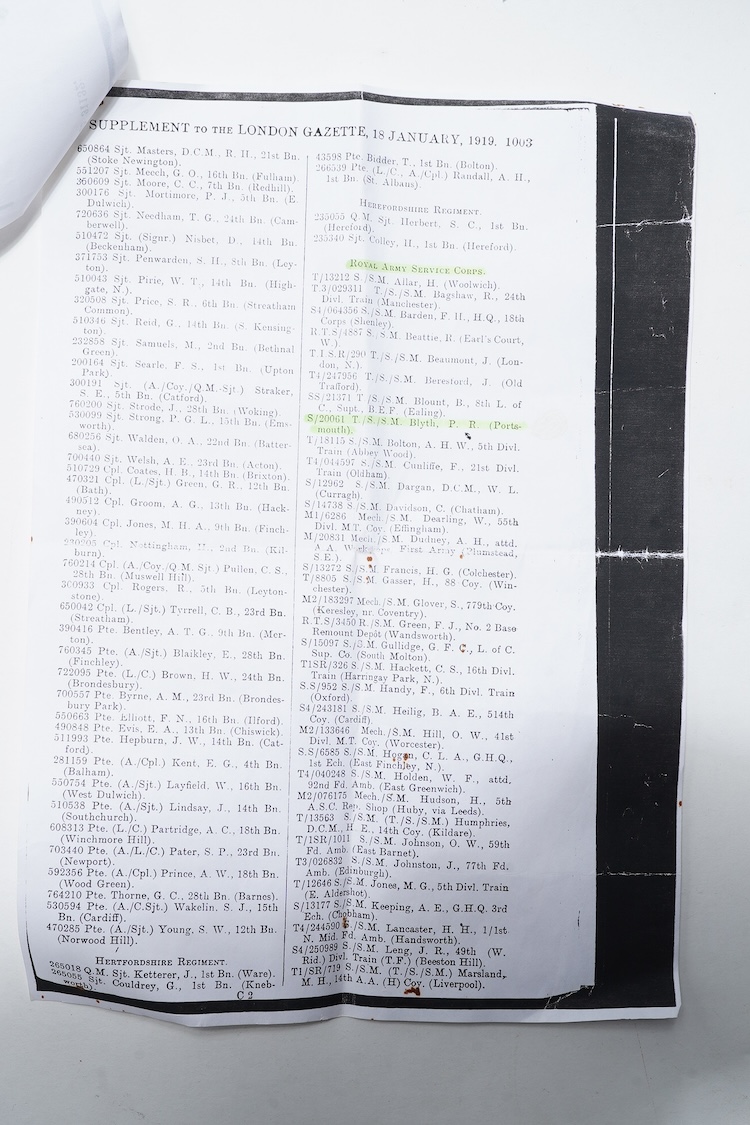 SUPPLEMENT TO THE LONDON GAZETTE, 18 JANUARY, 1919. 1003
650864 Sjt. Masters, D.C.M., R. H., 21st Bn.
(Stoke Newington).
551207 Sjt. Meech, G. O., 16th Bn. (Fulham).
350609 Sjt. Moore, C. C., 7th Bn. (Redhill).
300176 Sjt. Mortimore, P. J., 5th Bn. (E.
Dulwich).
720636 Sjt. Needham, T. G., 24th Bn. (Cam-
berwell).
510472 Sjt. (Signr.) Nisbet, D., 14th Bn.
(Beckenham).
371753 Sjt. Penwarden, S. H., 8th Bn. (Ley-
ton).
510043 Sjt. Pirie, W. T., 14th Bn. (High-
gate, N.).
320508 Sjt. Price, S. R., 6th Bn. (Streatham
Common).
510346 Sjt. Reid, G., 14th Bn. (S. Kensing-
ton).
232858 Sjt. Samuels, M., 2nd Bn. (Bethnal
Green).
200164 Sjt. Searle, F. S., 1st Bn. (Upton
Park).
300191 Sjt. (A./Coy./Q.M.-Sjt.) Straker,
S. E., 5th Bn. (Catford).
760200 Sjt. Strode, J., 28th Bn. (Woking).
530099 Sjt. Strong, P. G. L., 15th Bn. (Ems-
worth).
680256 Sjt. Walden, O. A., 22nd Bn. (Batter-
sea).
700440 Sjt. Welsh, A. E., 23rd Bn. (Acton).
510729 Cpl. Coates, H. B., 14th Bn. (Brixton).
470321 Cpl. (L./Sjt.) Green, G. R., 12th Bn.
(Bath).
490512 Cpl. Groom, A. G., 13th Bn. (Hack-
ney).
390604 Cpl. Jones, M. H. A., 9th Bn. (Finch-
ley).
Cpl. Nottingham, H., 2nd Bn. (Kil-
burn).
760214 Cpl. (A./Coy./Q.M. Sjt.) Pullen, C. S.,
28th Bn. (Muswell Hill).
300933 Cpl. Rogers, R., 5th Bn. (Leyton-
stone).
650042 Cpl. (L./Sjt.) Tyrrell, C. B., 23rd Bn.
(Streatham).
390416 Pte. Bentley, A. T. G., 9th Bn. (Mer-
ton).
760345 Pte. (A./Sjt.) Blaikley, E., 28th Bn.
(Finchley).
722095 Pte. (L./C.) Brown, H. W., 24th Bn.
(Brondesbury).
700557 Pte. Byrne, A. M., 23rd Bn. (Brondes-
bury Park).
550663 Pte. Elliott, F. N., 16th Bn. (Ilford).
490848 Pte. Evis, E. A., 13th Bn. (Chiswick).
511993 Pte. Hepburn, J. W., 14th Bn. (Cat-
ford).
281159 Pte. (A./Cpl.) Kent, E. G., 4th Bn.
(Balham).
550754 Pte. (A./Sjt.) Layfield, W., 16th Bn.
(West Dulwich).
510538 Pte. (A./Sjt.) Lindsay, J., 14th Bn.
(Southchurch).
608313 Pte. (L./C.) Partridge, A. C., 18th Bn.
(Winchmore Hill).
703440 Pte. (A./L./C.) Pater, S. P., 23rd Bn.
(Newport).
592356 Pte. (A./Cpl.) Prince, A. W., 18th Bn.
(Wood Green).
764210 Pte. Thorne, G. C., 28th Bn. (Barnes).
530594 Pte. (A./C.Sjt.) Wakelin, S. J., 15th
Bn. (Cardiff).
470285 Pte. (A./Sjt.) Young, S. W., 12th Bn.
(Norwood Hill).
HERTFORDSHIRE REGIMENT.
265018 Q.M. Sjt. Ketterer, J., 1st Bn. (Ware).
265055 Sjt. Couldrey, G., 1st Bn. (Kneb-
worth).
C 2
43598 Pte. Bidder, T., 1st Bn. (Bolton).
266539 Pte. (L./C., A./Cpl.) Randall, A. H.,
1st Bn. (St. Albans).
HEREFORDSHIRE REGIMENT.
235055 Q.M. Sjt. Herbert, S. C., 1st Bn.
(Hereford).
235340 Sjt. Colley, H., 1st Bn. (Hereford).
ROYAL ARMY SERVICE CORPS.
T/13212 S./S.M. Allar, H. (Woolwich).
T.3/029311 T./S./S.M. Bagshaw, R., 24th
Divl. Train (Manchester).
S4/064356 S./S.M. Barden, F. H., H.Q., 18th
Corps (Shenley).
R.T.S/4887 S./S.M. Beattie, R. (Earl's Court,
W.).
T.1.S.R/290 T./S./S.M. Beaumont, J. (Lon-
don, N.).
T4/247956 T./S./S.M. Beresford, J. (Old
Trafford).
SS/21371 T./S./S.M. Blount, B., 8th L. of
C., Supt., B.E.F. (Ealing).
S/20061 T./S./S.M. Blyth, P. R. (Ports-
mouth).
T/18115 S./S.M. Bolton, A. H. W., 5th Divl.
Train (Abbey Wood).
T4/044597 S./S.M. Cunliffe, F., 21st Divl.
Train (Oldham).
S/12962 S./S.M. Dargan, D.C.M., W. L.
(Curragh).
S/14738 S./S.M. Davidson, C. (Chatham).
M1/6286 Mech./S.M. Dearling, W., 55th
Divl. M.T. Coy. (Effingham).
M/20831 Mech./S.M. Dudney, A. H., attd.
A.A. First Army (Plumstead,
S.E.).
S/13272 S./S.M. Francis, H. G. (Colchester).
T/8805 S./S.M. Gasser, H., 88 Coy. (Win-
chester).
M2/183297 Mech./S.M. Glover, S., 779th Coy.
(Keresley, nr. Coventry).
R.T.S/3450 R./S.M. Green, F. J., No. 2 Base
Remount Depôt (Wandsworth).
S/15097 S./S.M. Gullidge, G. F. C., L. of C.
Sup. Co. (South Molton).
T1SR/326 S./S.M. Hackett, C. S., 16th Divl.
Train (Harringay Park, N.).
S.S/952 S./S.M. Handy, F., 6th Divl. Train
(Oxford).
S4/243181 S./S.M. Heilig, B. A. E., 514th
Coy. (Cardiff).
M2/133646 Mech./S.M. Hill, O. W., 41st
Divl. M.T. Coy. (Worcester).
S.S/6585 S./S.M. Hogan, C. L. A., G.H.Q.,
1st Ech. (East Finchley, N.).
T4/040248 S./S.M. Holden, W. F., attd.
92nd Fd. Amb. (East Greenwich).
M2/076175 Mech./S.M. Hudson, H., 5th
A.S.C. Rep. Shop (Huby, via Leeds).
T/13563 S./S.M. (T./S./S.M.) Humphries,
D.C.M., H. E., 14th Coy. (Kildare).
T/1SR/1011 S./S.M. Johnson, O. W., 59th
Fd. Amb. (East Barnet).
T3/026832 S./S.M. Johnston, J., 77th Fd.
Amb. (Edinburgh).
T/12646 S./S.M. Jones, M. G., 5th Divl. Train
(E. Aldershot).
S/13177 S./S.M. Keeping, A. E., G.H.Q. 3rd
Ech. (Chobham).
T4/244590 S./S.M. Lancaster, H. H., 1/1st
N. Mid. Fd. Amb. (Handsworth).
S4/250989 S./S.M. Leng, J. R., 49th (W.
Rid.) Divl. Train (T.F.) (Beeston Hill).
T1/SR/719 S./S.M. (T./S./S.M.) Marsland,
M. H., 14th A.A. (H) Coy. (Liverpool).